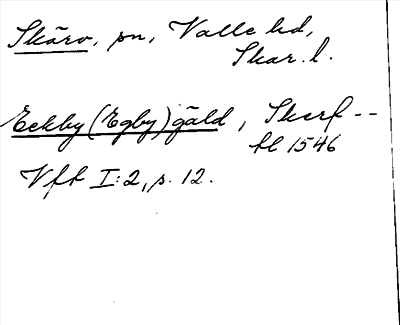 Skärv, sn, Valle hd,
Skar. l.
Eckby (Egby) gäld, Skerf --
fl 1546
Vft I:2, s. 12.